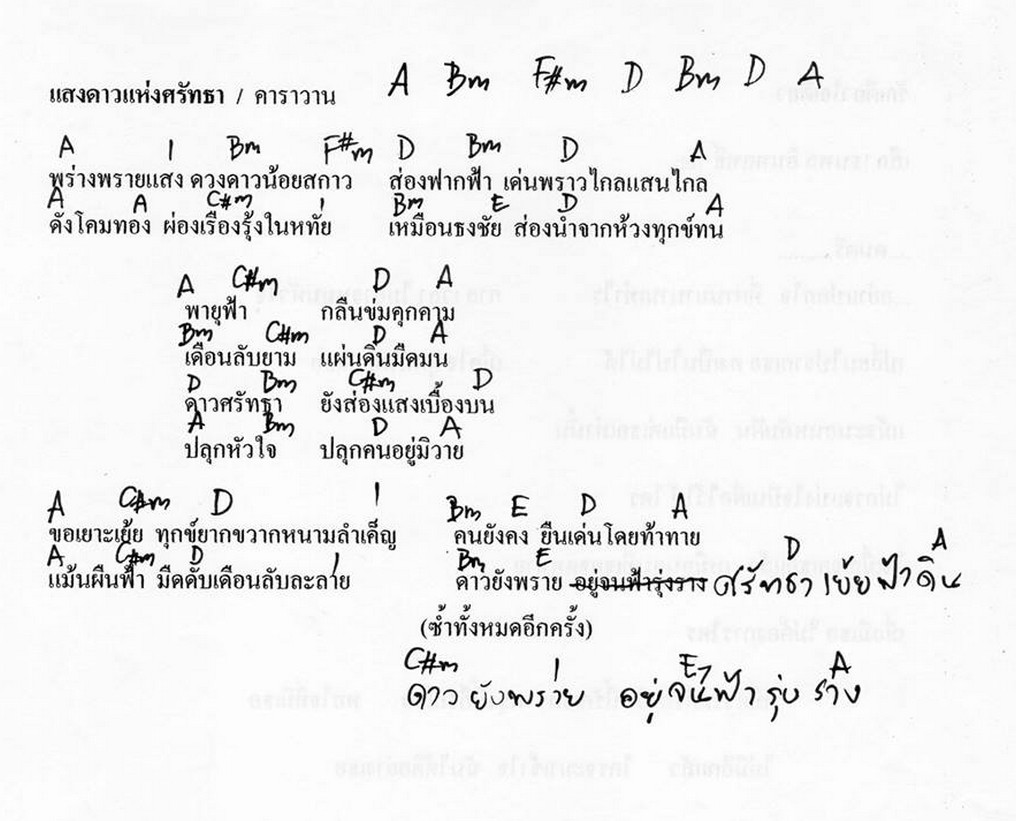 แสงดาวแห่งศรัทธา / คาราวาน A Bm F#m D Bm D A
A / Bm F#m D Bm D A
พร่างพรายแสง ดวงดาวน้อยสกาว ส่องฟากฟ้า เด่นพราวไกลแสนไกล
A A C#m / Bm E D A
ดั่งโคมทอง ผ่องเรืองรุ้งในหทัย เหมือนธงชัย ส่องนำจากห้วงทุกข์ทน
A C#m D A
พายุฟ้า กลืนข่มคุกคาม
Bm C#m D A
เดือนลับยาม แผ่นดินมืดมน
D Bm C#m D
ดาวศรัทธา ยังส่องแสงเบื้องบน
A Bm D A
ปลุกหัวใจ ปลุกคนอยู่มิวาย
A C#m D / Bm E D A
ขอเยาะเย้ย ทุกข์ยากขวากหนามลำเค็ญ คนยังคง ยืนเด่นโดยท้าทาย
A C#m D / Bm E D A
แม้นผืนฟ้า มืดดับเดือนลับละลาย ดาวยังพราย อยู่จนฟ้ารุ่งราง ศรัทธาเย้ยฟ้าดิน
(ซ้ำทั้งหมดอีกครั้ง)
C#m / E7 A
ดาวยังพราย อยู่จนฟ้ารุ่งราง